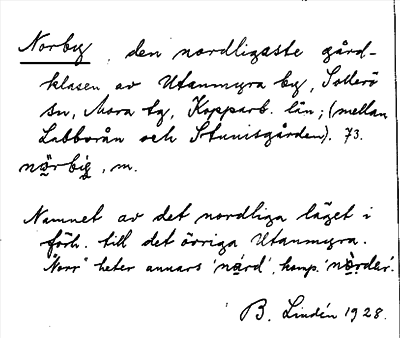 Norbyg, den nordligaste gård-
klasen av Utanmyra by, Sollerö
sn, Mora tg, Kopparb. län; (mellan
Labborån och Stunisgården). 73.
nörbig, m.
Namnet av det nordliga läget i
förh. till det övriga Utanmyra.
"Norr" heter annars 'nård', komp. 'nòrder'.
B. Lindén 1928.